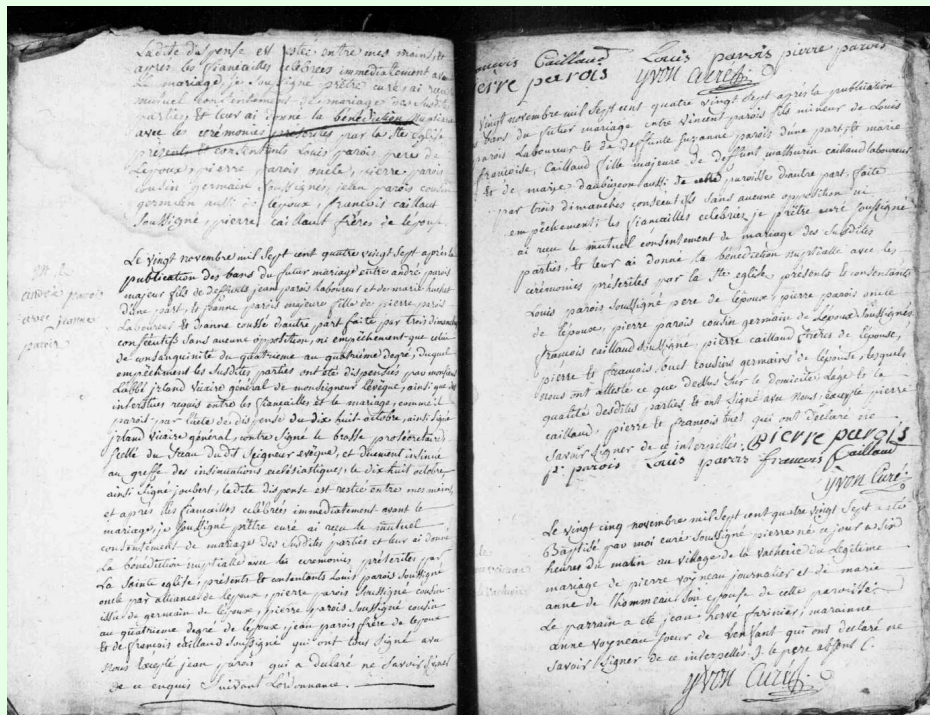 Ladite dispense est restée entre mes mains, et
après les fiançailles célébrées immédiatement avant
le mariage, je soussigné prêtre curé ai reçu
mutuel consentement de mariage des susdites
parties et leur ai donné la bénédiction nuptiale
avec les cérémonies prescrites par la Ste église
présents et consentants Louis parois pere de
Lepoux, pierre parois oncle, pierre parois
cousin germain soussignés, jean parois cousin
germain aussi de lepoux, francois caillaud
soussigné, pierre caillaud frères de lépou
Le vingt novembre mil sept cent quatre vingt sept après la
publication des bans du futur mariage entre andré parois
majeur fils de deffunts jean parois laboureur et de marie huchet
d'une part, et jeanne parois majeure fille de pierre parois
Laboureur et jeanne coussé d'autre part faite par trois dimanches
consécutifs sans aucune opposition, ni empêchement que celui
de consanguinité du quatrieme au quatrieme degré, duquel
empêchement les susdites parties ont été dispensées par monsieur
L'abbé irland vicaire général de monseigneur levêque, ainsi que des
interstices requis entre les fiançailles et le mariage, comme il
paroit par l'acte de dispense du dix huit octobre, ainsi signé
irland vicaire général, contre signé le brasse prosecretaire
scellé du sceau dudit seigneur evêque, et duement insinué
au greffe des insinuations ecclésiastiques, le dix huit octobre
ainsi signé joubert, ladite dispense est restée entre mes mains
et après les fiançailles célébrées immédiatement avant le
mariage, je soussigné prêtre curé ai reçu le mutuel
consentement de mariage des susdites parties et leur ai donné
la bénédiction nuptialle avec les cérémonies préscrites par
La Sainte eglise, présents et contentants Louis parois soussigné
oncle par alliance de lepoux, pierre parois soussigné cousin
issu de germain de lepoux, pierre parois soussigné cousin
au quatrieme degré de lepoux jean parois frère de lepoux
et de francois caillaud soussigné qui ont tous signé avec
nous excepté jean parois qui a déclaré ne savoir signer
de ce enquis suivant l'ordonnance.
andré parois
avec jeanne
parois
francois Caillaud Louis parois pierre parois
pierre parois yvon curé
vingt novembre mil sept cent quatre vingt sept après la publication
bans du futur mariage entre vincent parois fils mineur de Louis
parois Laboureur et de deffunte suzanne parois d'une part, et marie
francoise Caillaud fille majeure de deffunt mathurin caillaud laboureur
et de marie daubigeon aussi de cette paroisse d'autre part, faite
par trois dimanches consecutifs sans aucune opposition ni
empêchement; les fiançailles célébrées, je prêtre curé soussigné
ai reçu le mutuel consentement de mariage des susdites
parties, et leur ai donné la bénédiction nuptialle avec les
cérémonies préscrites par la Ste eglise, présents et consentants
Louis parois soussigné pere de lépoux, pierre parois oncle
de lépoux, pierre parois cousin germain de Lepoux soussignés
francois caillaud soussigné, pierre caillaud frères de lépouse,
pierre et francois buet cousins germains de lépouse, lesquels
nous ont attesté ce que dessus sur le domicile, lage et la
qualité desdites parties et ont signé avec nous, excepté pierre
caillaud, pierre et francois buet qui ont déclaré ne
savoir signer de ce interpellés. pierre parois
p. parois Louis parois françois Caillaud
yvon Curé
Le vingt cinq novembre mil sept cent quatre vingt sept a été
Baptisé par moi curé soussigné pierre né ce jour a
heures du matin au village de la vacherie du Légitime
mariage de pierre voyneau journalier et de marie
anne de lhommeau son epouse de cette paroisse.
Le parrain a été jean hervé farinier, marainne
anne voyneau soeur de lenfant qui ont déclaré ne
savoir signer de ce interpellés. le pere absent.
yvon Curé